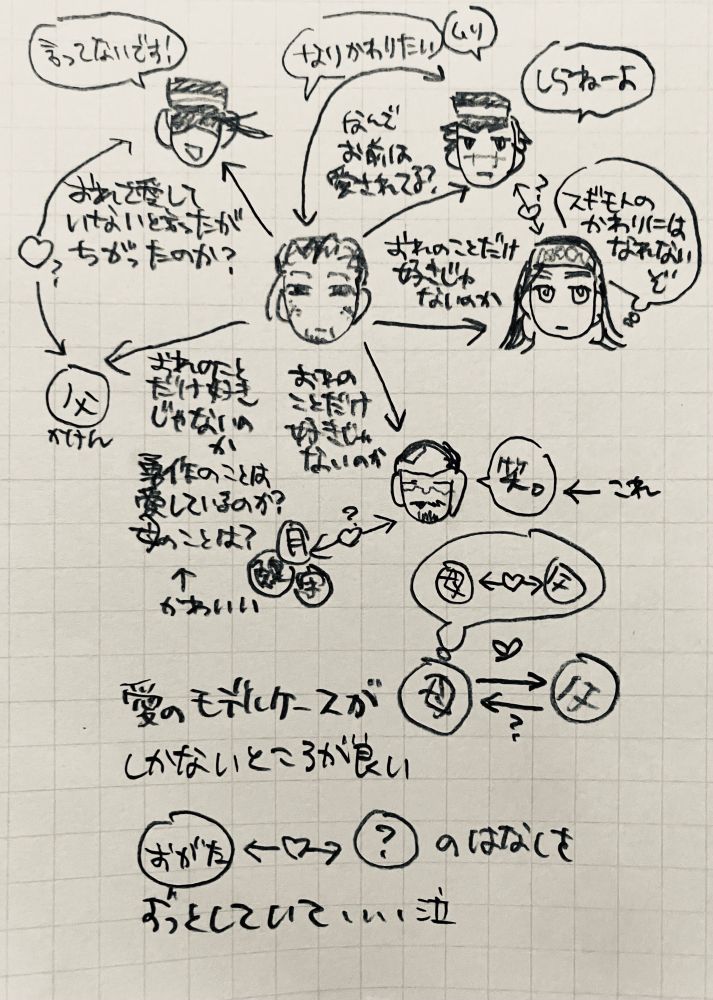 言ってないです!
なりかわりたい
ムリ
しらねーよ
なんで
お前は
愛されてる?
?
スギモトの
かわりには
なれない
ぞ
おれを愛して
いないと言ったが
ちがったのか?
?
おれのことだけ
好きじゃ
ないのか
父
かけん
おれのこと
だけ好き
じゃないの
か
勇作のことは
愛しているのか?
母のことは?
↑
かわいい
おれの
ことだけ
好きじゃ
ないのか
笑。
← これ
?
月
宇
母 ↔ 父
母
父
?
愛のモデルケースが
しかないところが良い
おがた ←♡→ ? のはなしを
ずっとしていて、、、泣